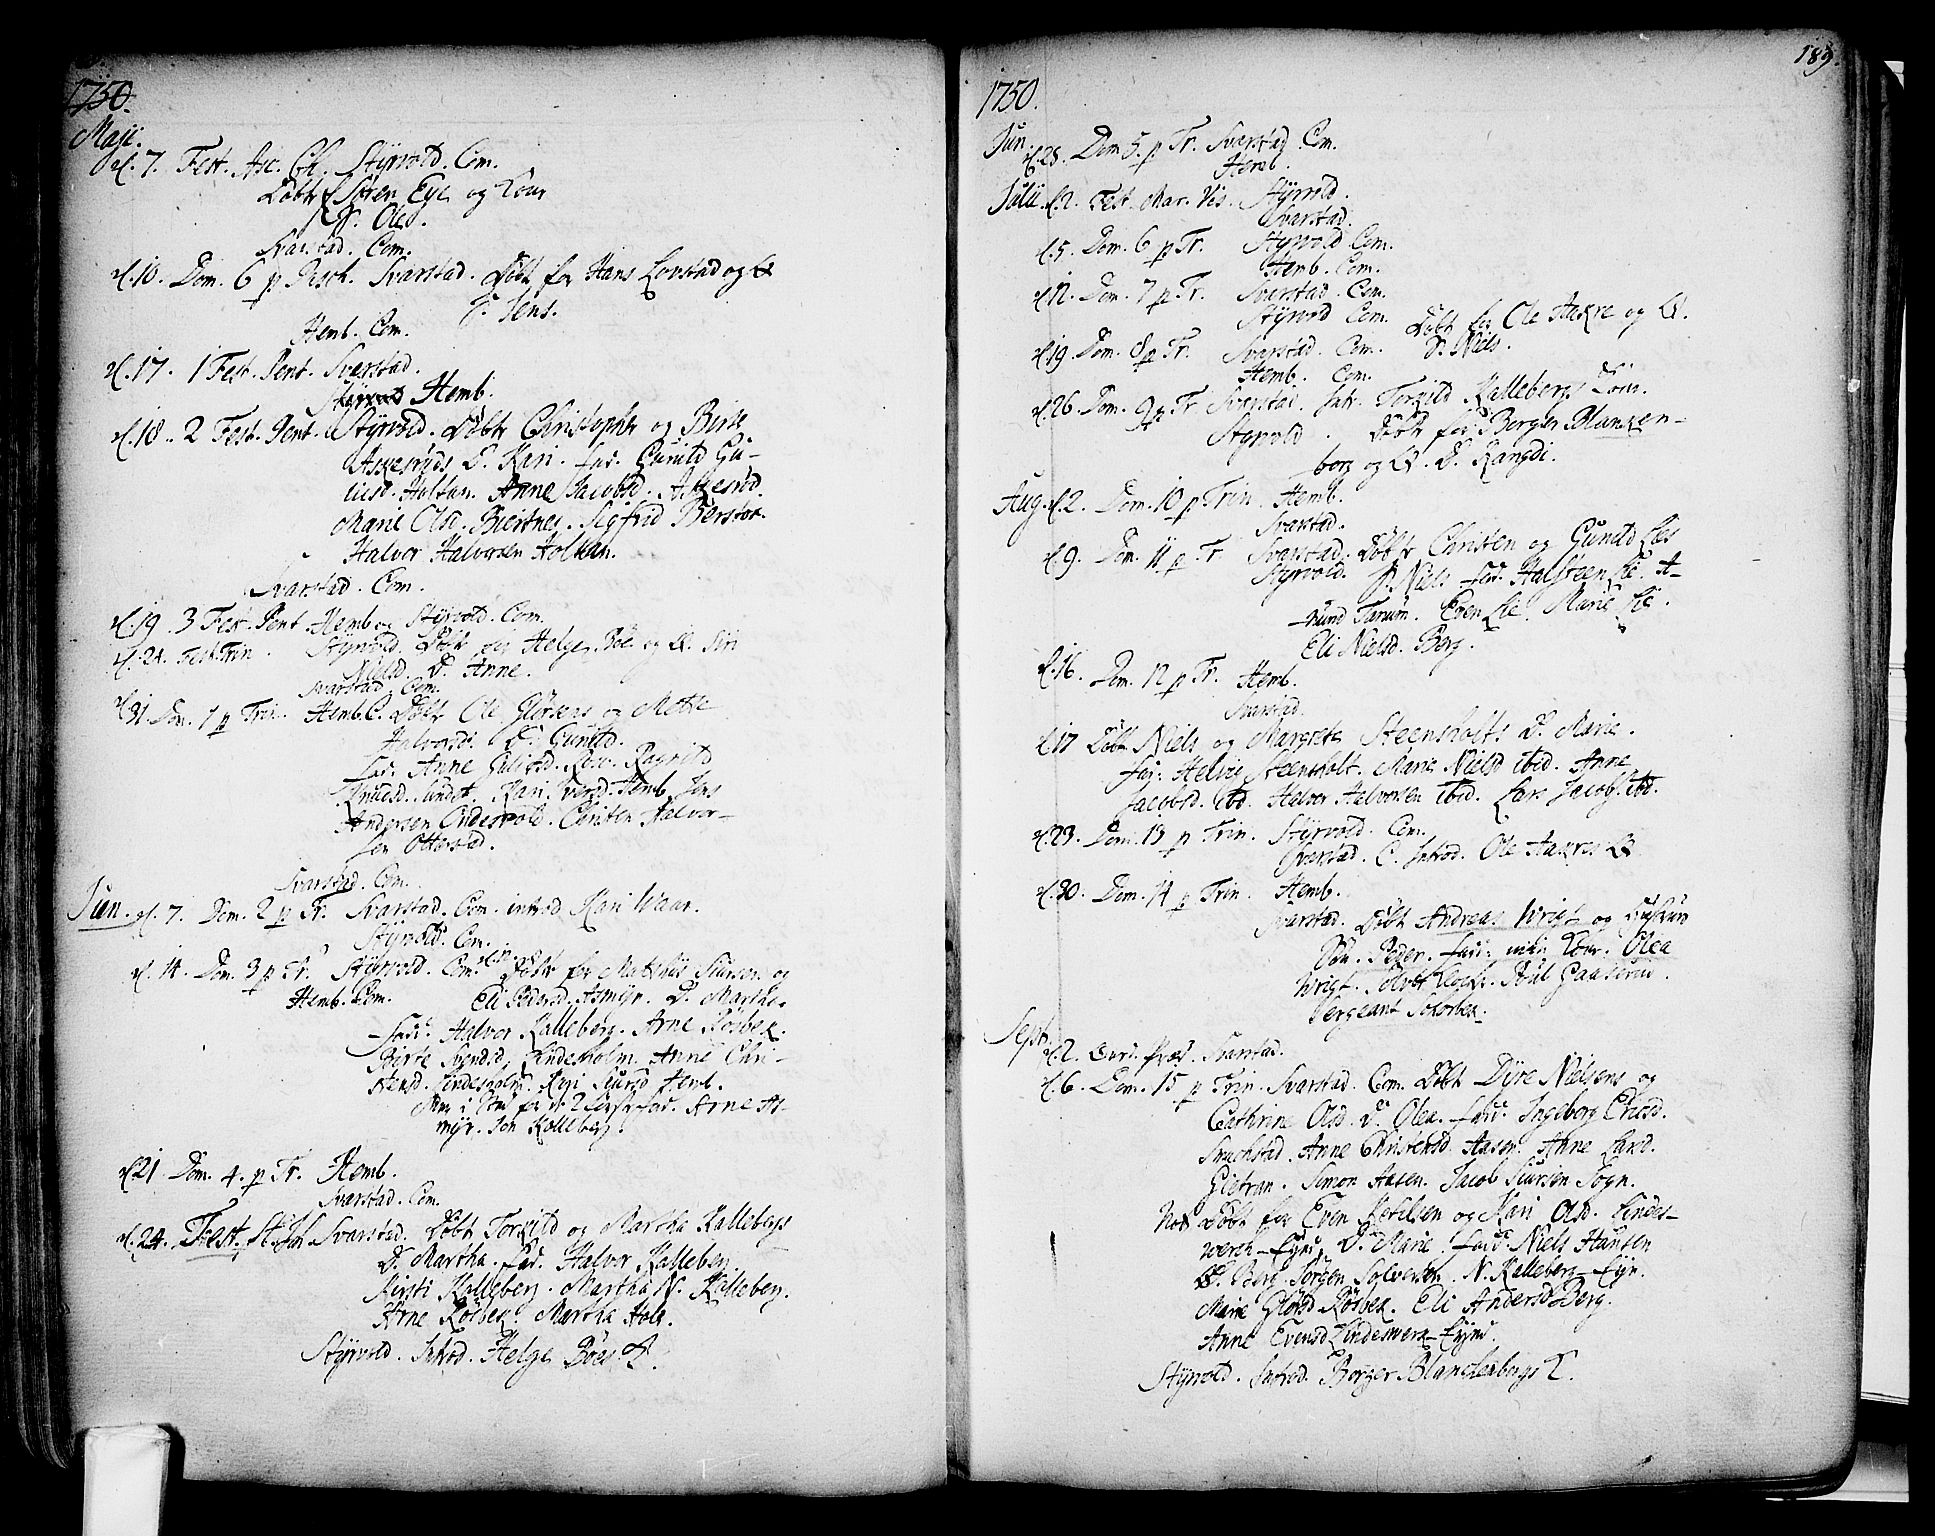 1750.
Maji.
d. 7. Fest. Asc. Ch. Styrvold. Com.
Döbt Sören Eye og Kone
S. Ole.
Svarstad. Com.
d. 10. Dom. 6 p Pasch. Svarstad. Döbt for Hans Lovstad og
S. Jens.
Hemb. Com.
d. 17. 1 Fest. Pent. Svarstad.
Hemb.
d. 18. 2 Fest. Pent. Styrvold. Döbt Christopher og Birte
Askeröds D. Kari. fad. Gunild Gu-
Holtan. Anne Jacobsd. Askeröd.
Marie Olsd. Biertnes. Sigfrid Berstok.
Halvor Halvorsen Holtan.
Svarstad. Com.
d. 19. 3 Fest. Pent. Hemb og Styrvold. Com.
d. 24. Fest. Trin. Styrvold. Döbt for Helge Böe og Siri
Nielsd. D. Anne.
Svarstad Com.
d. 31. Dom. 1 p Trin. Hemb. C. Döbt Ole Glörsens og Mette
Halvorsd. D. Gunild.
fad. Anne Gulichsd. Ragnild
Knudsd. Kari Iversd. Hemb. Jens
Andersen Christen Halvor-
sen Otterstad.
Svarstad. Com.
Jun. d. 7. Dom. 2 p Tr. Svarstad. Com. introd. Kari Waar.
Styrvold. Com.
d. 14. Dom. 3 p Tr. Styrvold. Com. Döbt for Matthis Siursen og
Hemb. Com. Eli Pedersd. Asmyr. D. Martha.
fad. Halvor Kalleberg. Arne Rösbek.
Birte Svendsd. Lindesholm. Anne Chri-
stensd. Lindesholm. Kari Siursd Hemb.
fad. Arne As-
myr. Jon Kalleberg.
d. 21 Dom. 4. p Tr. Hemb.
Svarstad. Com.
d. 24. Fest. St. Joh Svarstad. Döbt Torkild og Martha Kallebergs
D. Martha. fad. Halvor Kalleberg.
Kirsti Kalleberg. Martha N. Kalleberg.
Arne Rösbek. Martha Holt.
Styrvold. Introd. Helge Böes K.
189.
1750.
Jun. d. 28. Dom 5. p Tr. Svarstad Com.
Hemb.
Julii d. 2. Fest. Mar. Vis. Styrvold.
Svarstad.
d. 5. Dom. 6 p Tr. Styrvold Com.
Hemb. Com.
d. 12. Dom. 7 p Tr. Svarstad. Com.
Styrvold Com.
d. 19. Dom. 8 p Tr. Svarstad. Com. Döbt for Ole Aakre og
Hemb. Com. S. Niels.
d. 26. Dom. 9 p Tr Svarstad. Intr. Torkild Kallebergs Kone.
Styrvold. Döbt for Borger Blanken-
borg og D. Rangdi.
Aug. d. 2. Dom. 10 p Trin. Hemb.
Svarstad.
d. 9. Dom. 11 p Tr Svarstad. Döbt Christen og Gunild Lies
Styrvold. S. Niels fad. Halsteen Lie. A-
mund Tanum. Even Lie. Marie Lie.
Eli Nielsd. Berg.
d. 16. Dom. 12 p Tr. Hemb.
Svarstad.
d. 17 Döbt Niels og Margrete Steensholts D. Marie.
fad. Helvig Steensholt. Marie Nielsd ibid. Anne
Jacobsd. ibd. Halvor Halvorsen ibid. Lars Jacobs. ibd.
d. 23. Dom. 13 p Trin. Styrvold. Com.
Svarstad. C. Introd. Ole Aakres
d. 30. Dom. 14 p Trin. Hemb.
Svarstad. Döbt Andreas Wrigt og Hustrues
Sön. Peder. fad. min Kone. Olea
Wrigt. Poul Gaaserud.
Sergeant
Sept. d. 2. Svarstad.
d. 6. Dom. 15 p Trin. Svarstad. Com. Döbt Dyre Nielsens og
Cathrine Olsd. D. Olea. fad. Ingeborg Ericsd.
Anne Christensd. Aasen. Anne Larsd.
Simon Aasen. Jacob Siursen Sogn.
Not Döbt for Even Ketilsen og Kari Olsd. Lindes-
werk-Eyns D. Marie. fad. Niels Hansen
Berg. Jörgen Solversen. N. Kalleberg-Eyn.
Marie Glörsd Rösbek. Eli Andersd Berg.
Anne Evensd Lindeswerk-Eyns.
Styrvold. Introd. Borger Blanckenbergs K.